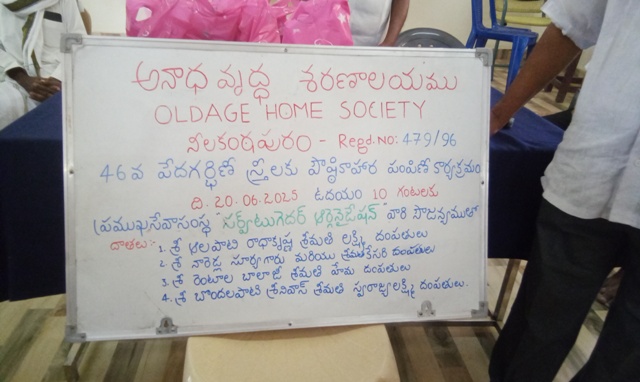 అనాధ వృద్ధ శరణాలయము
OLDAGE HOME SOCIETY
నీలకంఠపురం - Regd.No: 479/96
46వ పేదగర్భిణీ స్త్రీలకు పౌష్ఠికాహార పంపిణీ కార్యక్రమం
ది. 20.06.2025 ఉదయం 10 గంటలకు
ప్రముఖసేవాసంస్థ "సర్వ్‌టుగెదర్ ఆర్గనైజేషన్" వారి సౌజన్యముతో
దాతలు:- 1. శ్రీ ఆలపాటి రాధాకృష్ణ శ్రీమతి లక్ష్మి దంపతులు
2. శ్రీ నారెడ్ల సూర్యగారు మరియు శ్రీమతి కేసరి దంపతులు
3. శ్రీ రెంటాల బాలాజీ శ్రీమతి హేమ దంపతులు
4. శ్రీ బొందలపాటి శ్రీనివాస్ శ్రీమతి స్వరాజ్యలక్ష్మి దంపతులు.